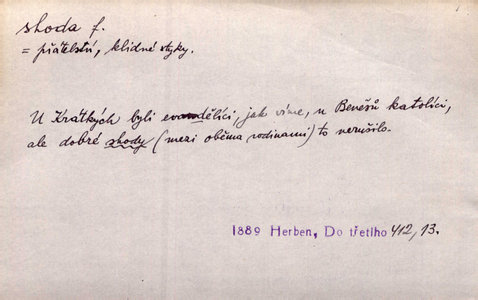 shoda f.
= přátelství, klidné styky.
U Krátkých byli evandělíci, jak víme, u Benešů katolíci,
ale dobré shody (mezi oběma rodinami) to nerušilo.
1889 Herben, Do třetího 412, 13.